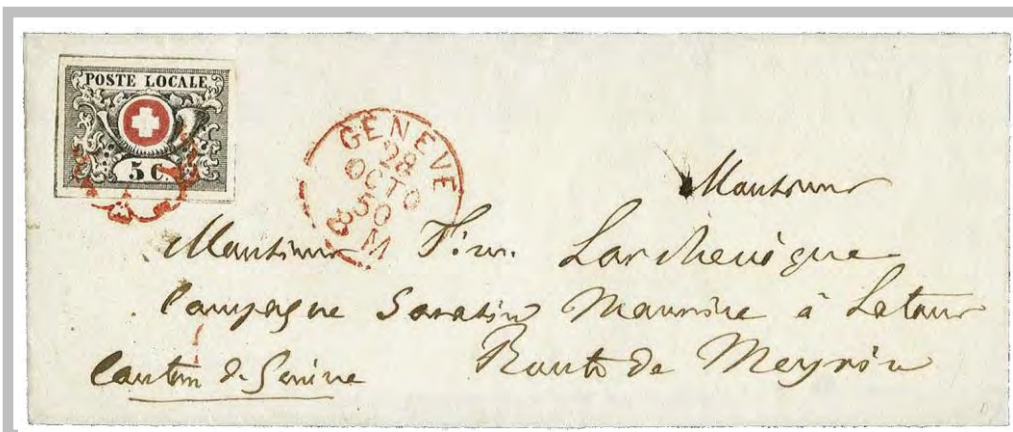 POSTE LOCALE
5 C.
GENÈVE
28
OCTO
50
8 M
Monsieur
Monsieur Larchevêque
Campagne Sarasin Maurice à Latour
Route de Meyrin
Canton de Genève